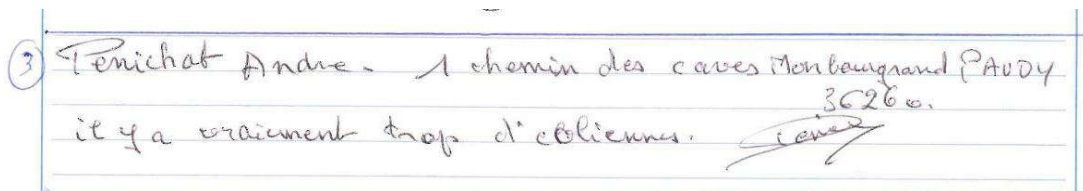 ③ Penichat Andre. 1 chemin des caves Monbourgrand PAUDY
36260.
il y a vraiment trop d'eoliennes.